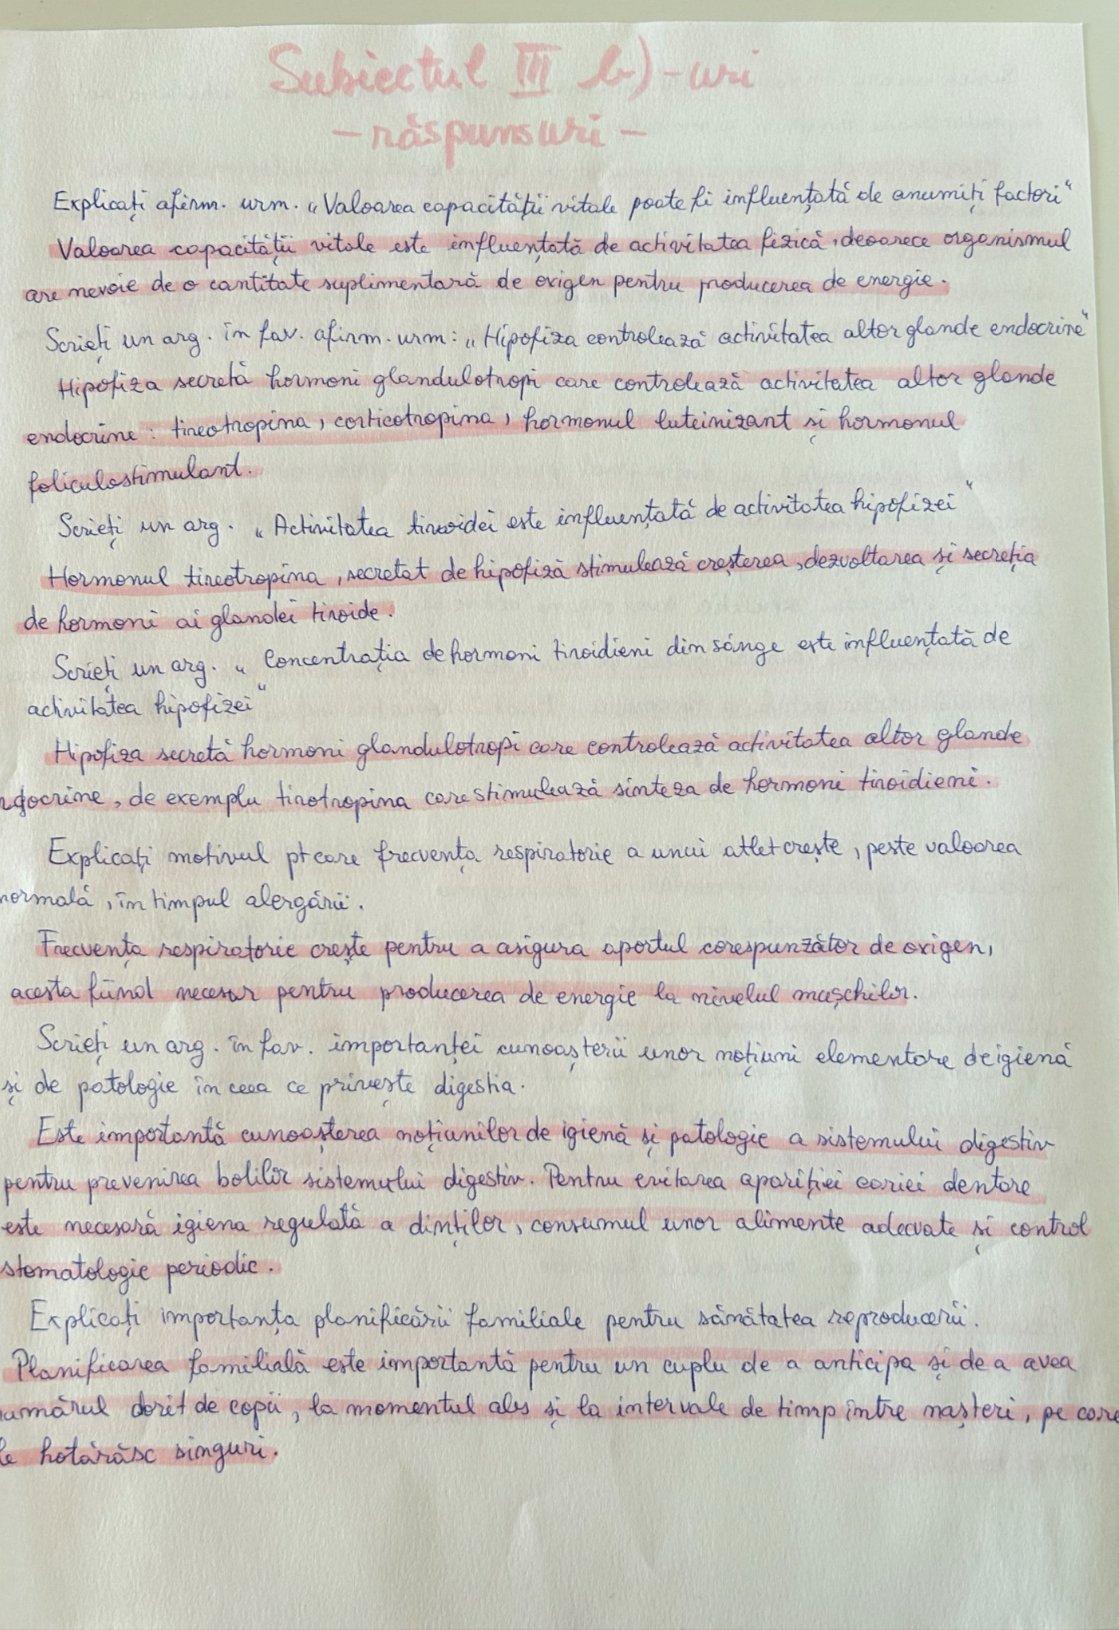 Subiectul III b)-uri
- răspunsuri -
Explicați afirm. urm. „Valoarea capacității vitale poate fi influențată de anumiți factori"
Valoarea capacității vitale este influențată de activitatea fizică, deoarece organismul
are nevoie de o cantitate suplimentară de oxigen pentru producerea de energie.
Scrieți un arg. în fav. afirm. urm: „Hipofiza controlează activitatea altor glande endocrine"
Hipofiza secretă hormoni glandulotropi care controlează activitatea altor glande
endocrine: tireotropina, corticotropina, hormonul luteinizant și hormonul
foliculostimulant.
Scrieți un arg. „Activitatea tiroidei este influențată de activitatea hipofizei"
Hormonul tireotropina, secretat de hipofiză stimulează creșterea, dezvoltarea și secreția
de hormoni ai glandei tiroide.
Scrieți un arg. „Concentrația de hormoni tiroidieni din sânge este influențată de
activitatea hipofizei"
Hipofiza secretă hormoni glandulotropi care controlează activitatea altor glande
ndocrine, de exemplu tirotropina care stimulează sinteza de hormoni tiroidieni.
Explicați motivul pt care frecvența respiratorie a unui atlet crește, peste valoarea
normală, în timpul alergării.
Frecvența respiratorie crește pentru a asigura aportul corespunzător de oxigen,
acesta fiind necesar pentru producerea de energie la nivelul mușchilor.
Scrieți un arg. în fav. importanței cunoașterii unor noțiuni elementare de igienă
și de patologie în ceea ce privește digestia.
Este importantă cunoașterea noțiunilor de igienă și patologie a sistemului digestiv
pentru prevenirea bolilor sistemului digestiv. Pentru evitarea apariției cariei dentare
este necesară igiena regulată a dinților, consumul unor alimente adecvate și control
stomatologic periodic.
Explicați importanța planificării familiale pentru sănătatea reproducerii.
Planificarea familială este importantă pentru un cuplu de a anticipa și de a avea
umărul dorit de copii, la momentul ales și la intervale de timp între nașteri, pe care
le hotărăsc singuri.